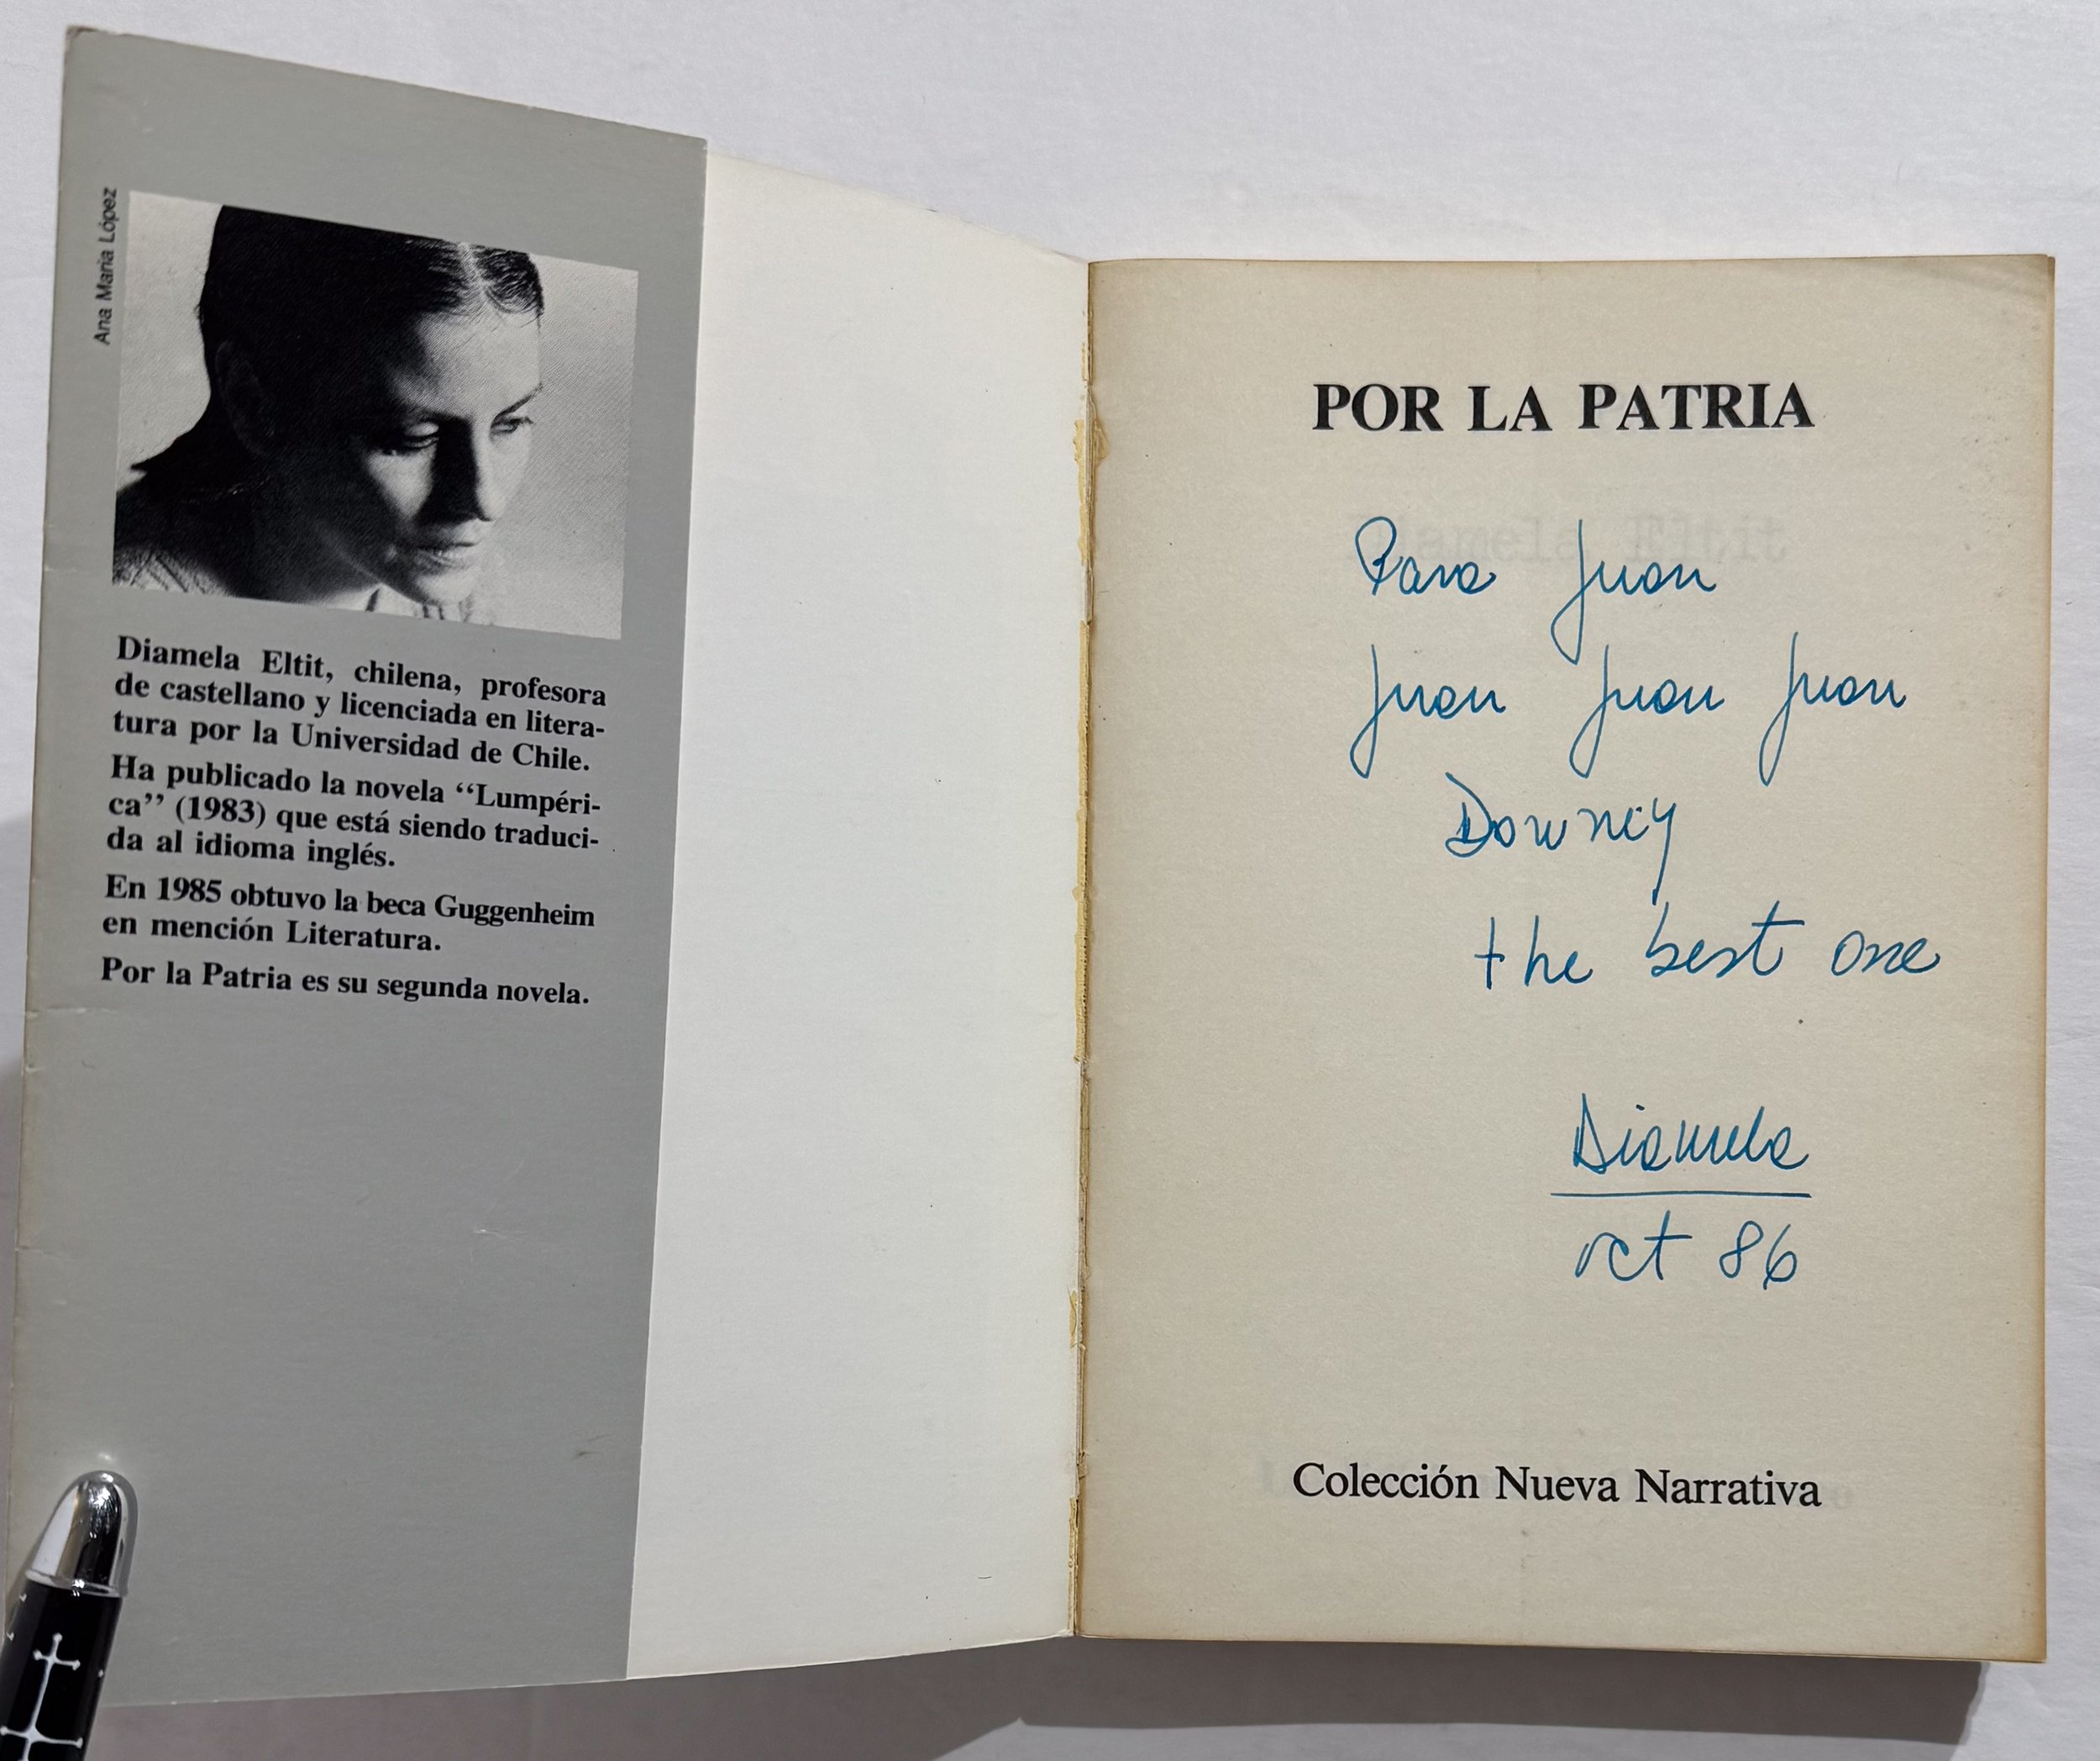 Ana María López
Diamela Eltit, chilena, profesora
de castellano y licenciada en litera-
tura por la Universidad de Chile.
Ha publicado la novela “Lumpéri-
ca” (1983) que está siendo traduci-
da al idioma inglés.
En 1985 obtuvo la beca Guggenheim
en mención Literatura.
Por la Patria es su segunda novela.
POR LA PATRIA
Diamela Eltit
Para Juan
Juan Juan Juan
Downey
the best one
Diamela
oct 86
Colección Nueva Narrativa